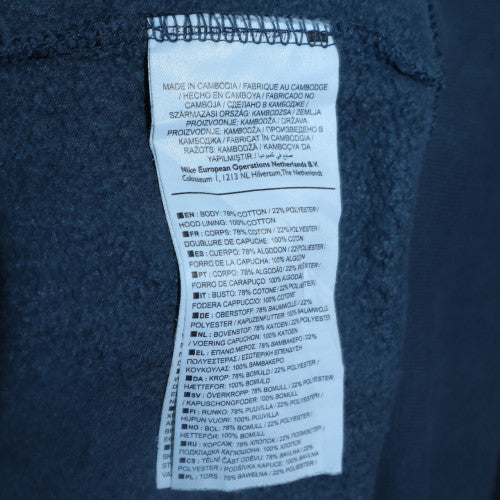 MADE IN CAMBODIA / FABRIQUE AU CAMBODGE
/ HECHO EN CAMBOYA / FABRICADO NO
CAMBOJA / СДЕЛАНО В КАМБОДЖЕ /
SZÁRMAZÁSI ORSZÁG: KAMBODZSA / ZEMLJA
PROIZVODNJE: KAMBODŽA / DRŽAVA
PROIZVODNJE: KAMBODŽA / ПРОИЗВЕДЕНО В
КАМБОДЖА / FABRICAT ÎN CAMBODGIA /
RAŽOTS: KAMBODŽĀ / KAMBOÇYA'DA
YAPILMIŞTIR / صنع في كمبوديا
Nike European Operations Netherlands B.V.
Colosseum 1, 1213 NL Hilversum, The Netherlands
EN : BODY: 78% COTTON / 22% POLYESTER /
HOOD LINING: 100% COTTON
FR : CORPS: 78% COTON / 22% POLYESTER /
DOUBLURE DE CAPUCHE: 100% COTON
ES : CUERPO: 78% ALGODÓN / 22% POLIÉSTER /
FORRO DE LA CAPUCHA: 100% ALGODÓN
PT : CORPO: 78% ALGODÃO / 22% POLIÉSTER /
FORRO DE CARAPUÇO: 100% ALGODÃO
IT : BUSTO: 78% COTONE / 22% POLIESTERE /
FODERA CAPPUCCIO: 100% COTONE
DE : OBERSTOFF: 78% BAUMWOLLE / 22%
POLYESTER / KAPUZENFUTTER: 100% BAUMWOLLE
NL : BOVEN: 78% KATOEN / 22% POLYESTER
/ VOERING CAPUCHON: 100% KATOEN
EL : ΕΠΑΝΩ ΜΕΡΟΣ: 78% ΒΑΜΒΑΚΕΡΟ / 22%
ΠΟΛΥΕΣΤΕΡΑΣ / ΕΣΩΤΕΡΙΚΗ ΕΠΕΝΔΥΣΗ
ΚΟΥΚΟΥΛΑΣ: 100% ΒΑΜΒΑΚΕΡΟ
DA : KROP: 78% BOMULD / 22% POLYESTER /
HÆTTEFOR: 100% BOMULD
SV : ÖVERKROPP: 78% BOMULL / 22% POLYESTER
/ KAPUSCHONGFODER: 100% BOMULL
FI : RUNKO: 78% PUUVILLA / 22% POLYESTERI /
HUPUN VUORI: 100% PUUVILLA
NO : BOL: 78% BOMULL / 22% POLYESTER /
HETTEFÔR: 100% BOMULL
RU : КОРСАЖ: 78% ХЛОПОК / 22% ПОЛИЭСТЕР /
ПОДКЛАДКА КАПЮШОНА: 100% ХЛОПОК
CS : TĚLNÍ ČÁST ODĚVU: 78% BAVLNA / 22%
POLYESTER / PODŠÍVKA KAPUCE: 100% BAVLNA
PL : TORS: 78% BAWEŁNA / 22% POLIESTER /